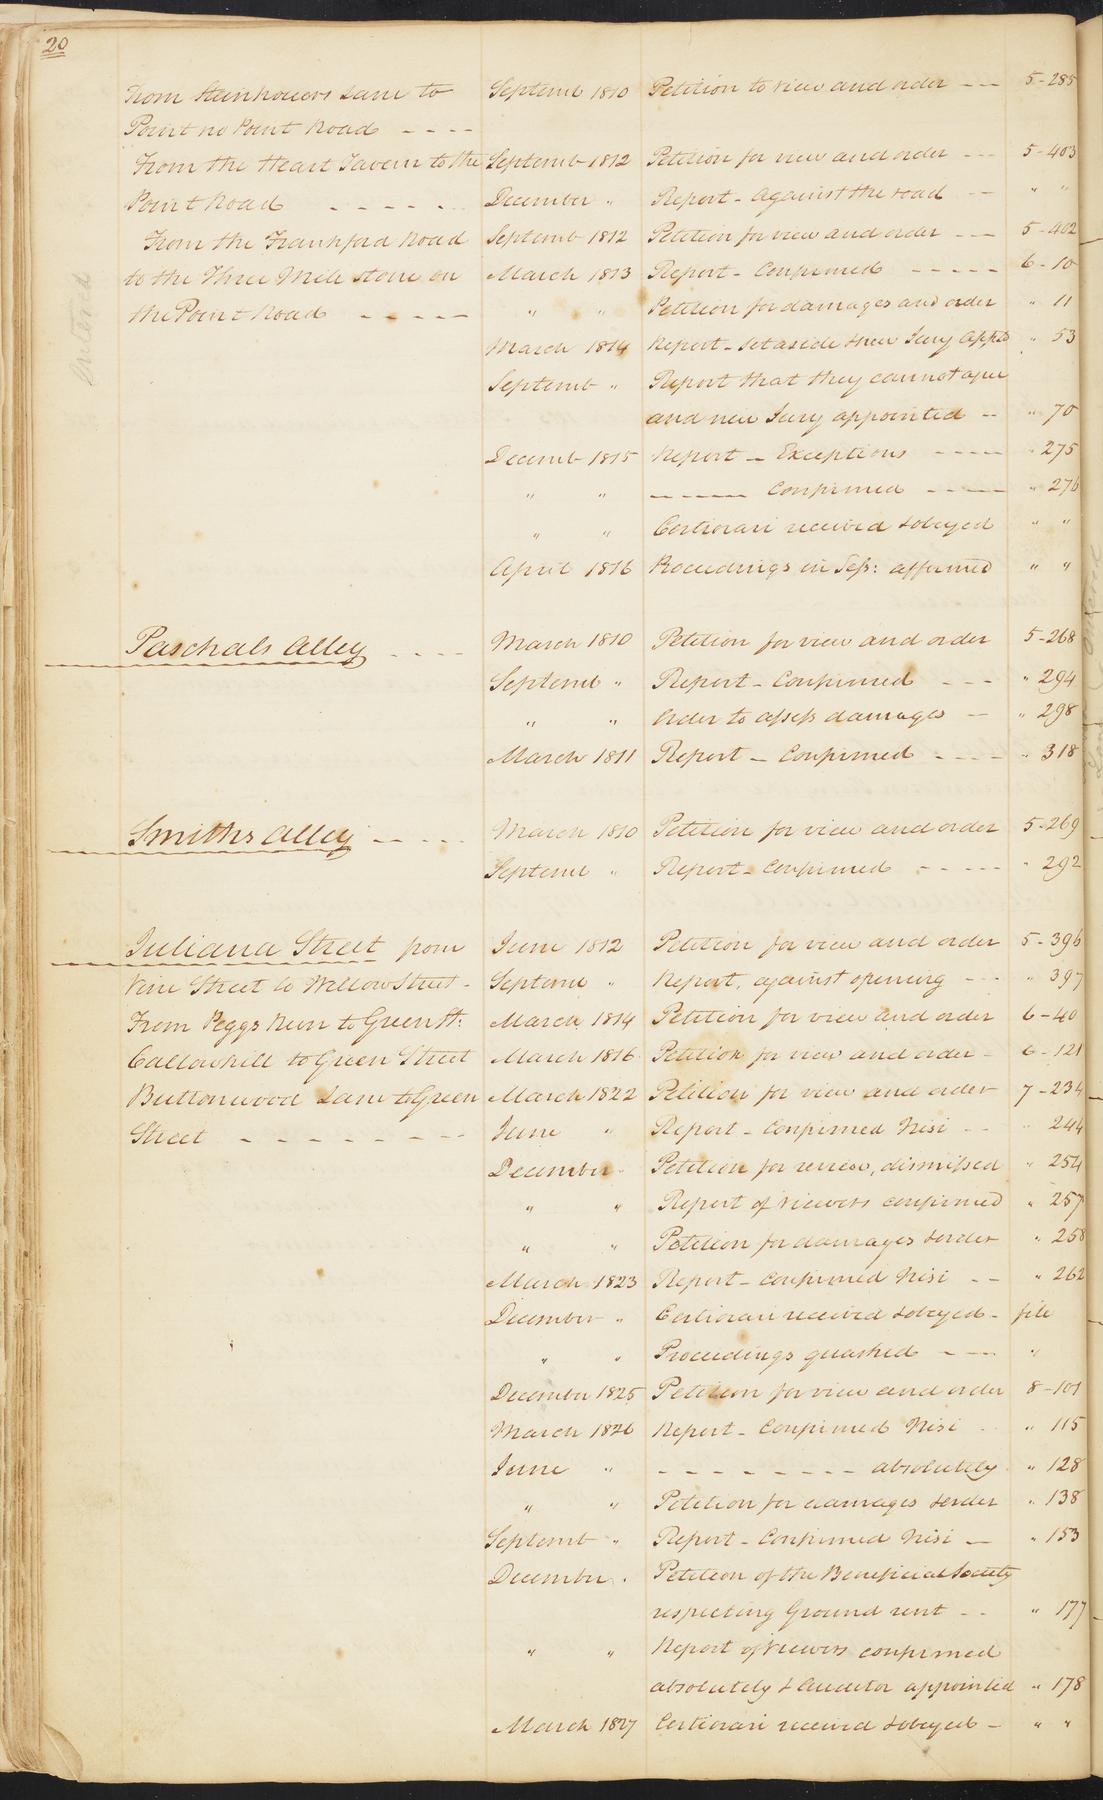 20
From Steinhouers Lane to Septemb 1810 Petition to view and order --- 5-285
Point no Point Road ----
From the Heart Tavern to the Septemb 1812 Petition for view and order --- 5-403
Point Road ----- December " Report - Against the road -- " "
From the Frankford Road Septemb 1812 Petition for view and order --- 5-402
to the Three Mile stone on March 1813 Report - Confirmed ----- 6-10
the Point Road ----- " " Petition for damages and order " 11
March 1814 Report - Set aside & new Jury app.d " 53
Septemb " Report that they cannot agree
and new Jury appointed -- " 70
Decemb 1815 Report - Exceptions ---- " 275
" " ---- Confirmed ---- " 276
" " Certiorari received & obeyed " "
April 1816 Proceedings in Sess: affirmed " "
Paschals Alley ---- March 1810 Petition for view and order 5-268
Septemb " Report - Confirmed --- " 294
" " Order to assess damages -- " 298
March 1811 Report - Confirmed ---- " 318
Smiths Alley ---- March 1810 Petition for view and order 5-269
Septemb " Report - Confirmed ----- " 292
Juliana Street from June 1812 Petition for view and order 5-396
Vine Street to Willow Street - Septemb " Report, against opening --- " 397
From Peggs Run to Green St: March 1814 Petition for view and order 6-40
Callowhill to Green Street March 1816 Petition for view and order - 6-121
Buttonwood Lane to Green March 1822 Petition for view and order 7-234
Street -------- June " Report - Confirmed Nisi -- " 244
December " Petition for review, dismissed " 254
" " Report of viewers confirmed " 257
" " Petition for damages & order " 258
March 1823 Report - Confirmed Nisi -- " 262
December " Certiorari received & obeyed - file
" " Proceedings quashed --- "
December 1825 Petition for view and order 8-101
March 1826 Report - Confirmed Nisi - " 115
June " -------- absolutely " 128
" " Petition for damages & order " 138
Septemb " Report - Confirmed Nisi - " 153
December " Petition of the Beneficial Society
respecting Ground rent -- " 177
" " Report of viewers confirmed
absolutely & Auditor appointed " 178
March 1827 Certiorari received & obeyed - " "
Entered